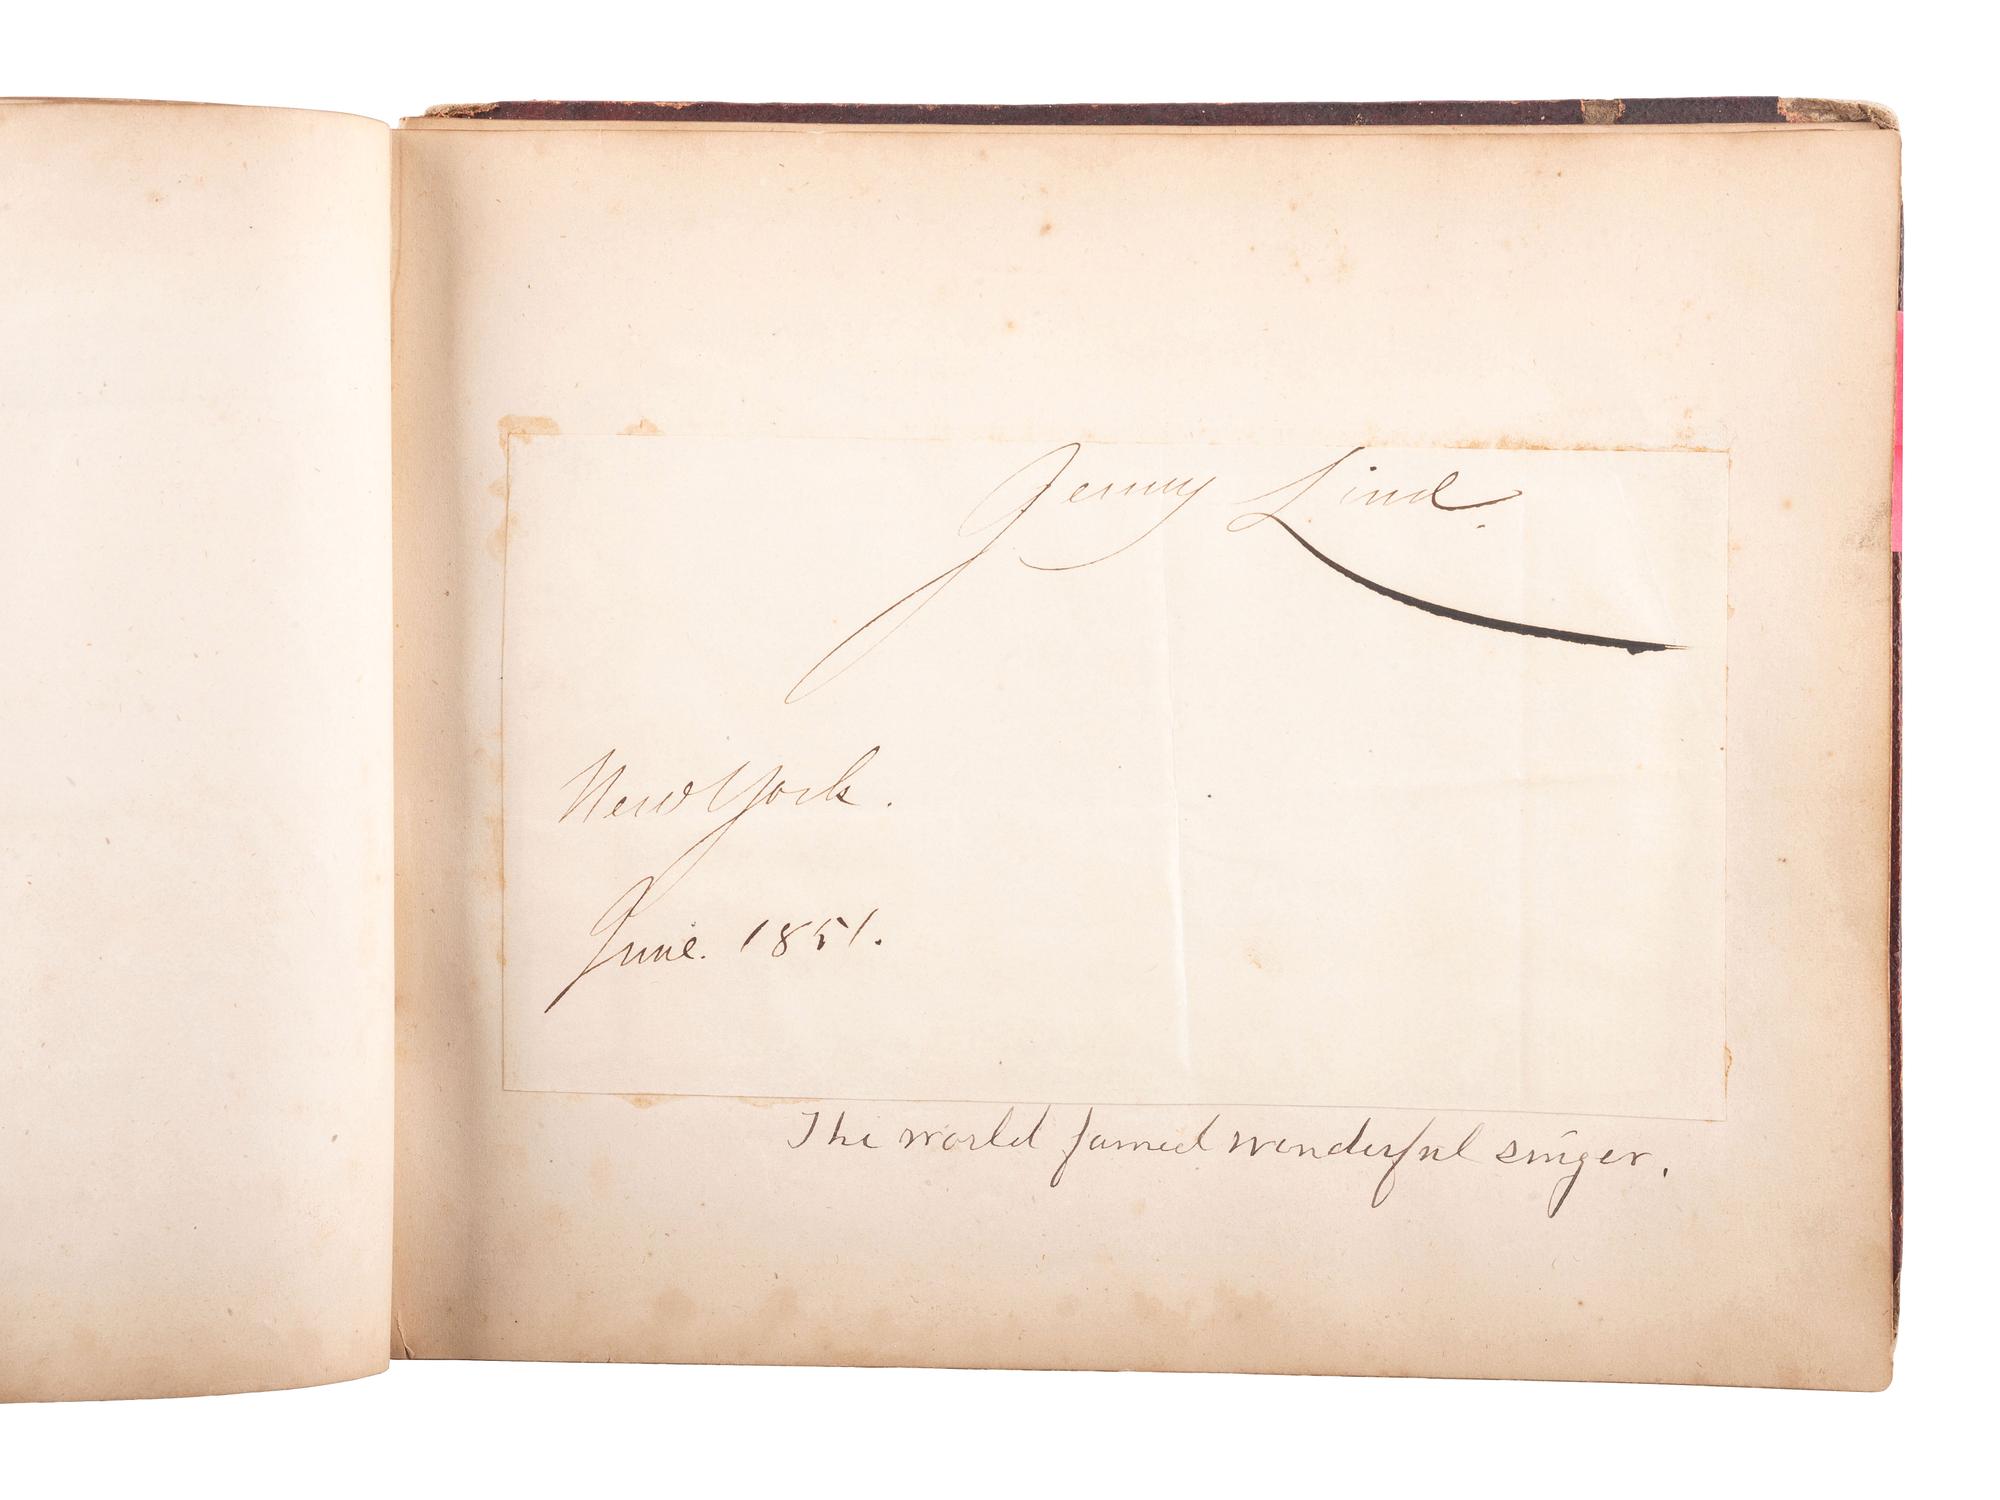 Jenny Lind.
New York.
June. 1851.
The world famed wonderful singer.